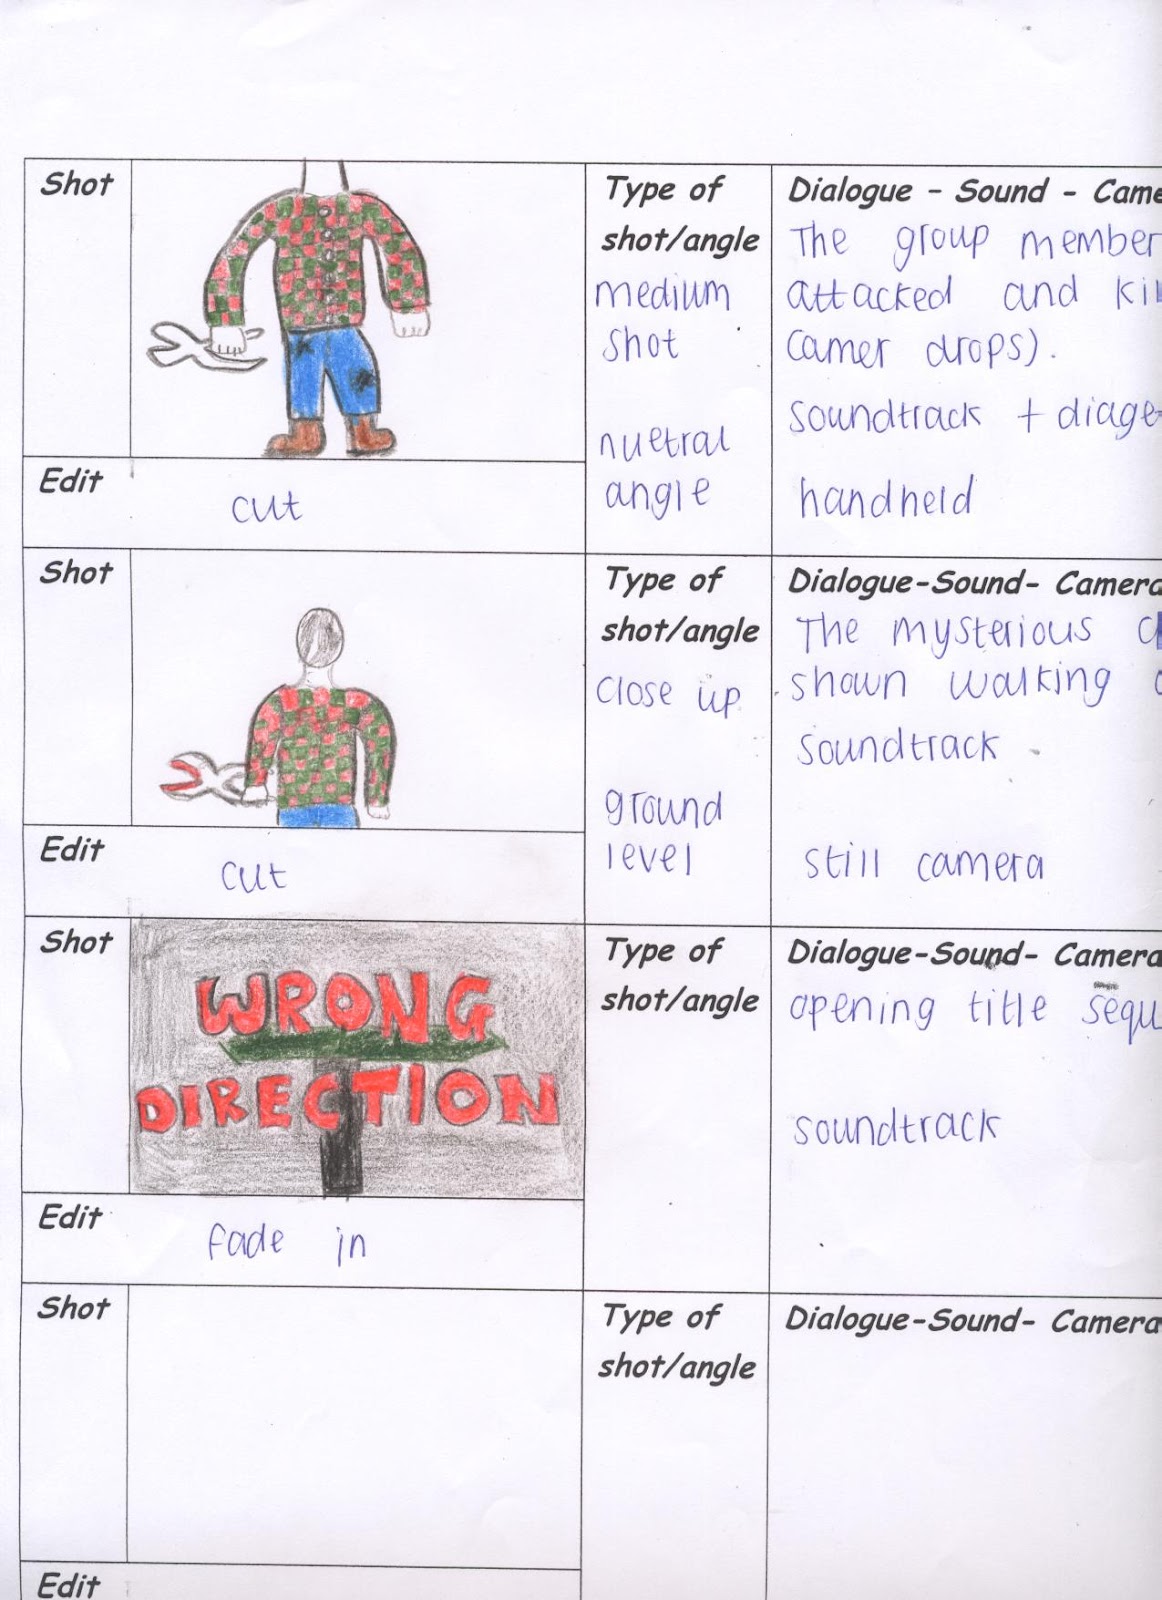 Shot
Type of
shot/angle
medium
shot
nuetral
angle
Dialogue - Sound - Came
The group member
attacked and ki
camer drops).
soundtrack + diage-
handheld
Edit
cut
Shot
Type of
shot/angle
close up
ground
level
Dialogue-Sound- Camera
The mysterious
shown walking
soundtrack
still camera
Edit
cut
Shot
WRONG
DIRECTION
Type of
shot/angle
Dialogue-Sound- Camera
opening title sequ
soundtrack
Edit
fade in
Shot
Type of
shot/angle
Dialogue-Sound- Camera
Edit